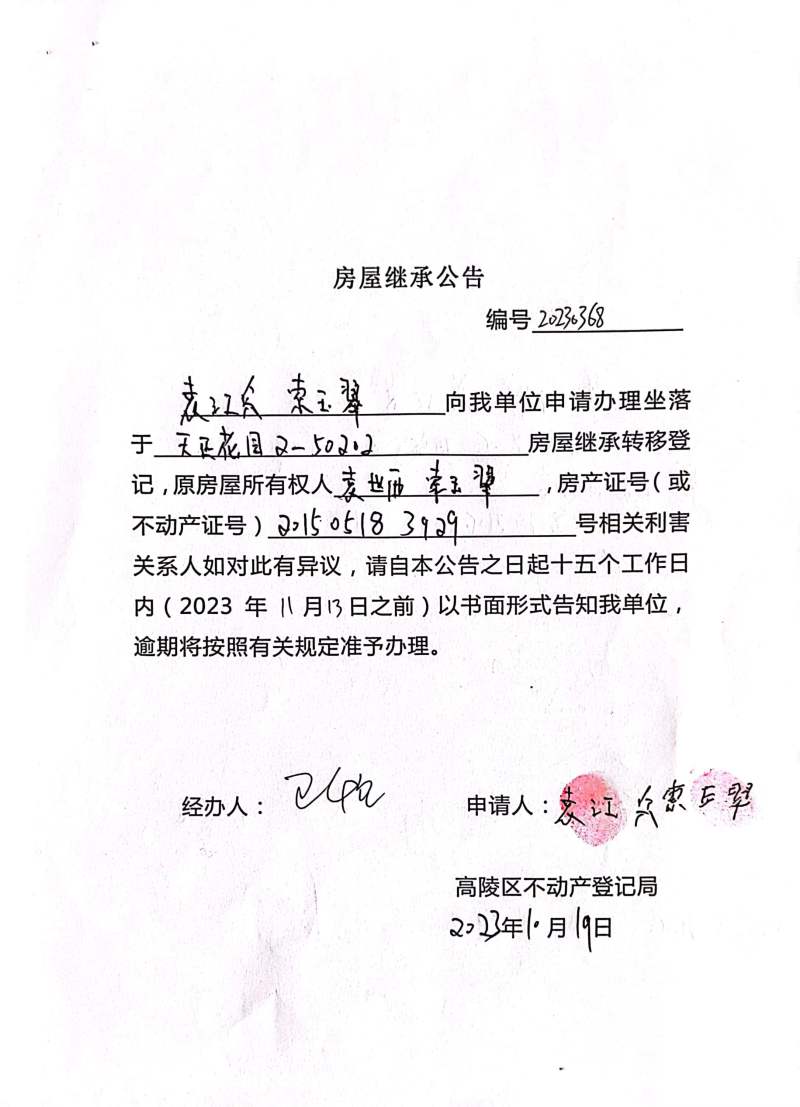 房屋继承公告
编号 20230368
袁江谷 索玉翠 向我单位申请办理坐落
于 天正花园2-50202 房屋继承转移登
记，原房屋所有权人 袁世西 索玉翠 ，房产证号（或
不动产证号） 20150518 3929 号相关利害
关系人如对此有异议，请自本公告之日起十五个工作日
内（2023 年 11 月 13 日之前）以书面形式告知我单位，
逾期将按照有关规定准予办理。
经办人： 申请人：袁江谷 索玉翠
高陵区不动产登记局
2023年10月19日